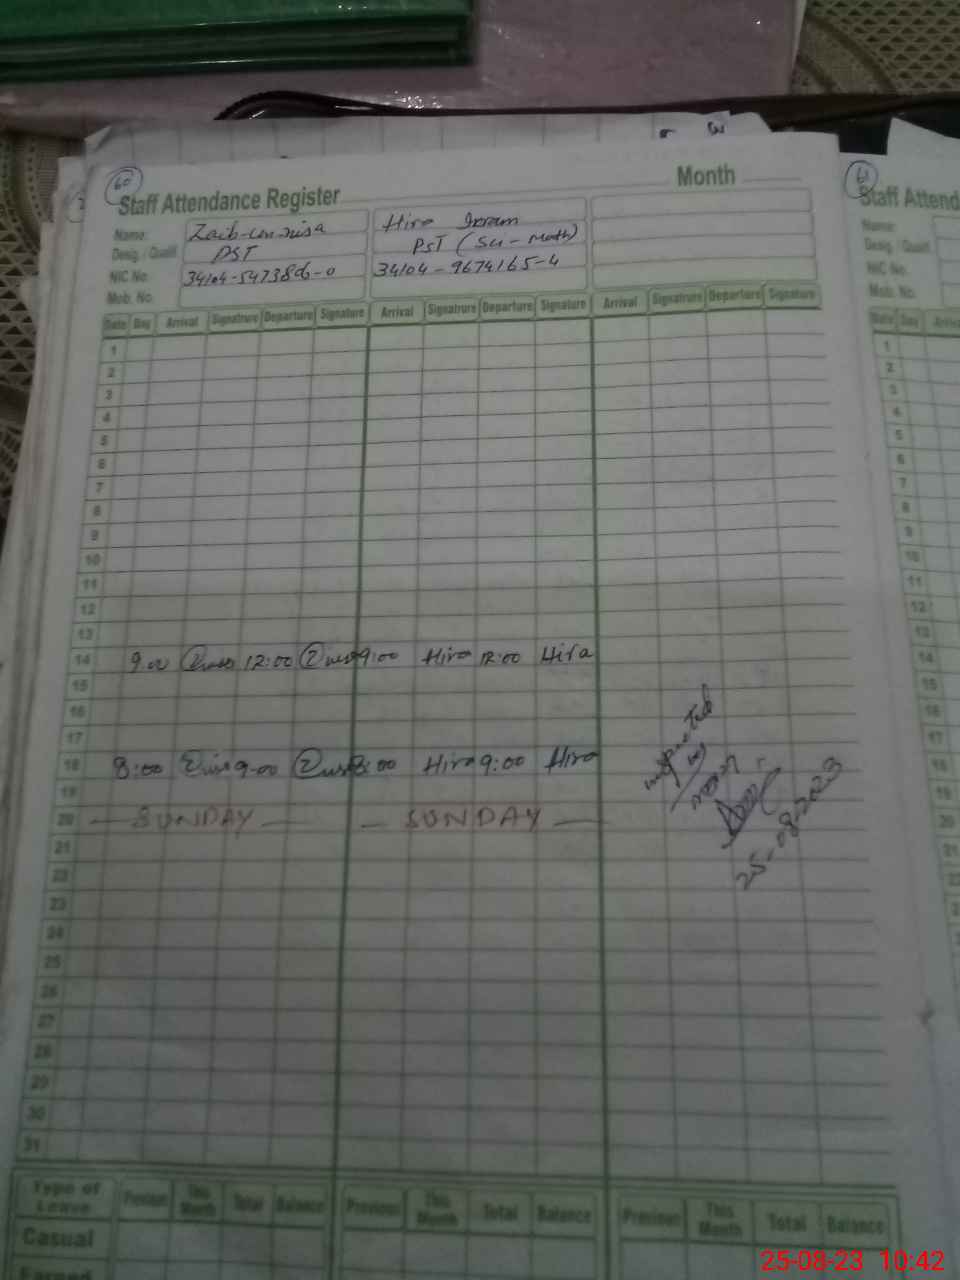 60
Staff Attendance Register
Month
Name:
Zaib-un-nisa
Hira Ikram
Desig. / Qualif.
PST
PST (Sci-Math)
NIC No.
34104-9674165-4
Mob. No.
Date Day Arrival Signatrure Departure Signature Arrival Signatrure Departure Signature Arrival Signatrure Departure Signature
1
2
3
4
5
6
7
8
9
10
11
12
13
14 9:00 12:00 9:00 Hira 12:00 Hira
15
16
17
18 8:00 9:00 8:00 Hira 9:00 Hira
19
20 — SUNDAY — — SUNDAY —
21
22
23
24
25
26
27
28
29
30
31
inspected
25-08-2023
Type of Leave Previous This Month Total Balance Previous This Month Total Balance Previous This Month Total Balance
Casual
Earned
61
Staff Attend
Name:
Desig. / Qualif.
NIC No.
Mob. No.
Date Day Arriv
1
2
3
4
5
6
7
8
9
10
11
12
13
14
15
16
17
18
19
20
21
25-08-23 10:42